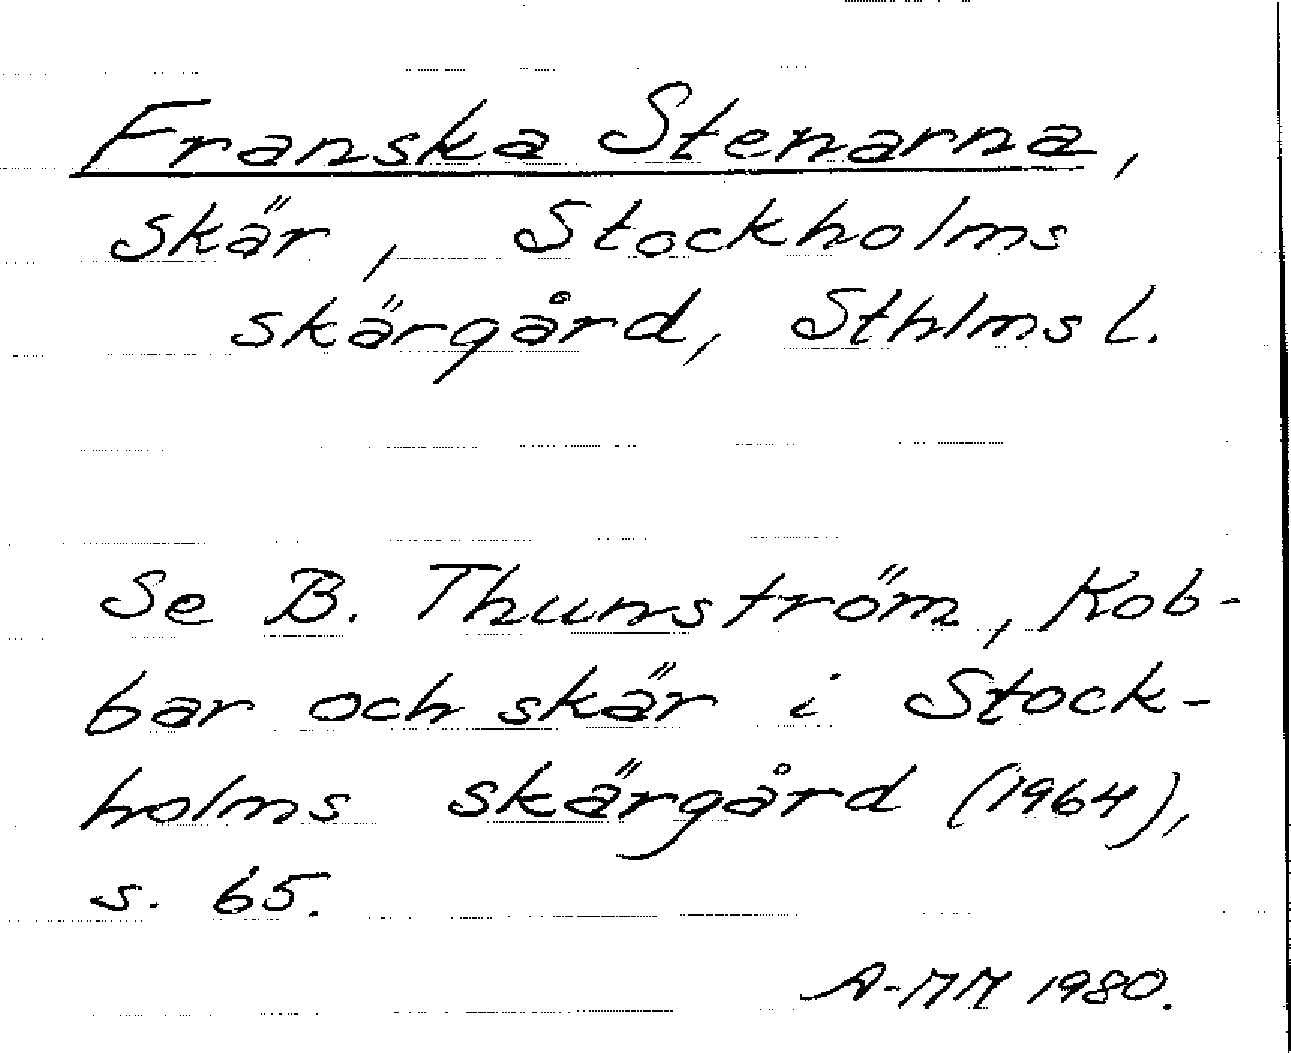 Franska Stenarna,
skär, Stockholms
skärgård, Sthlms l.
Se B. Thunström, Kob-
bar och skär i Stock-
holms skärgård (1964),
s. 65.
A-MM 1980.